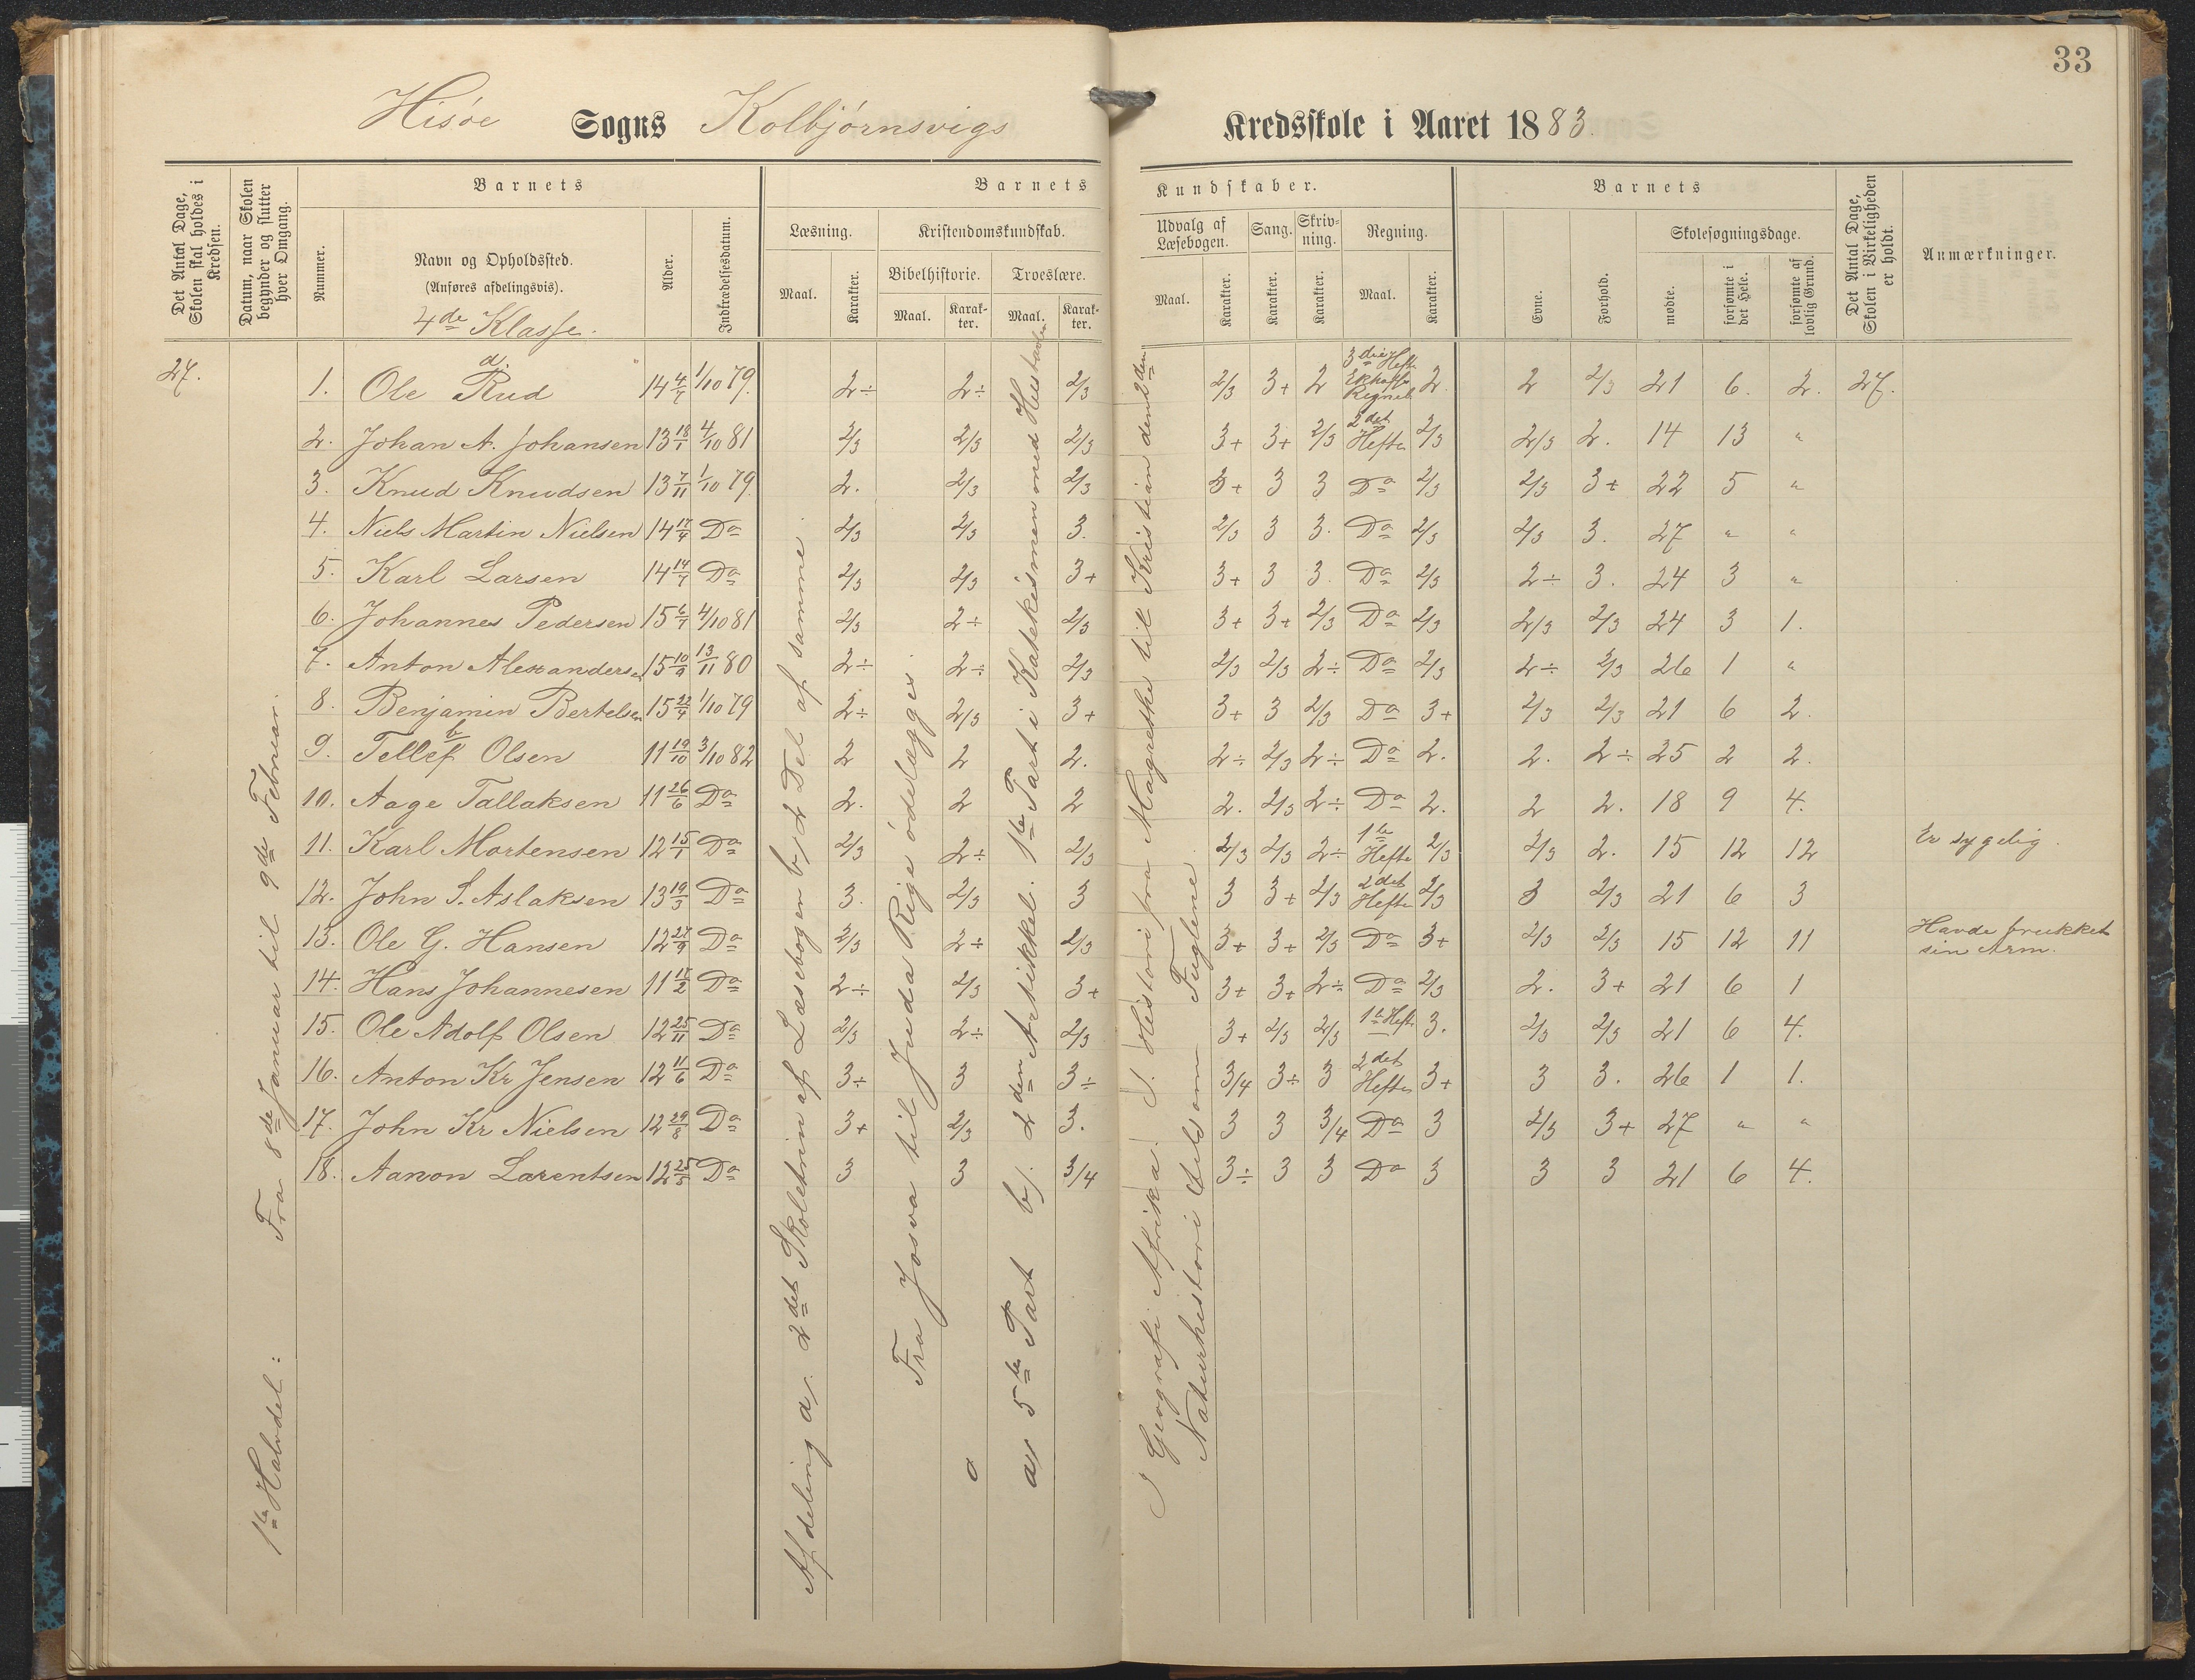 33
Hisøe Sogns Kolbjørnsvigs Kredsskole i Aaret 1883.
Det Antal Dage, Skolen skal holdes i Kredsen.
Datum, naar Skolen begynder og slutter hver Omgang.
Barnets
Nummer.
Navn og Opholdssted.
(Anføres afdelingsvis).
4de Klasse.
Alder.
Indtrædelsesdatum.
Barnets Kundskaber.
Læsning.
Maal.
Karakter.
Kristendomskundskab.
Bibelhistorie.
Maal.
Karakter.
Troeslære.
Maal.
Karakter.
Udvalg af Læsebogen.
Maal.
Karakter.
Sang.
Karakter.
Skrivning.
Karakter.
Regning.
Maal.
Karakter.
Barnets
Evne.
Forhold.
Skolesøgningsdage.
mødte.
forsømte i det Hele.
forsømte af lovlig Grund.
Det Antal Dage, Skolen i Virkeligheden er holdt.
Anmærkninger.
27.
1ste Halvdel: Fra 8de Januar til 9de Februar.
Afdeling a. 2det Skoletrin af Læsebogen b, 2 Del af samme.
Fra Josva til Juda Rige ødelægges.
a, 5te Part b). 2den Artikkel. 1ste Part i Katekismen med Hustavlen
I Geografi Afrika. I. Historie fra Magrethe til Kristian den 2den
Naturhistorie Fuglene
a.
1. Ole Rud 14 4/7 1/10 79. 2÷ 2÷ 2/3 2/3 3+ 2 3die Hefte Regneb 2. 2 2/3 21 6. 2. 27.
2. Johan A. Johansen 13 18/1 4/10 81 2/3 2/3 2/3 3+ 3+ 2/3 2det Hefte 2/3 2/3 2. 14 13 "
3. Knud Knudsen 13 7/11 1/10 79. 2. 2/3 2/3 3+ 3 3 Do 2/3 2/3 3+ 22 5 "
4. Niels Martin Nielsen 14 17/4 Do 2/3 2/3 3. 2/3 3 3. Do 2/3 2/3 3. 27 " "
5. Karl Larsen 14 14/7 Do 2/3 2/3 3+ 3+ 3 3. Do 2/3 2÷ 3. 24 3 "
6. Johannes Pedersen 15 6/7 4/10 81 2/3 2÷ 2/3 3+ 3+ 2/3 Do 2/3 2/3 2/3 24 3 1.
7. Anton Alexandersen 15 10/9 13/11 80 2÷ 2÷ 2/3 2/3 2/3 2÷ Do 2/3 2÷ 2/3 26 1 "
8. Benjamin Bertelsen 15 22/4 1/10 79 2÷ 2/3 3+ 3+ 3 2/3 Do 3+ 2/3 2/3 21 6 2.
b
9. Tellef Olsen 11 19/10 3/10 82 2 2 2. 2÷ 2/3 2÷ Do 2. 2. 2÷ 25 2 2.
10. Aage Tallaksen 11 26/6 Do 2. 2 2 2. 2/3 2÷ Do 2. 2 2. 18 9 4.
11. Karl Mortensen 12 15/1 Do 2/3 2÷ 2/3 2/3 2/3 2÷ 1te Hefte 2/3 2/3 2. 15 12 12 Er sygelig.
12. John S. Aslaksen 13 19/3 Do 3. 2/3 3 3 3+ 2/3 2det Hefte 2/3 3 2/3 21 6 3
13. Ole G. Hansen 12 27/9 Do 2/3 2÷ 2/3 3+ 3+ 2/3 Do 3+ 2/3 2/3 15 12 11 Havde brukket sin Arm.
14. Hans Johannesen 11 17/2 Do 2÷ 2/3 3+ 3+ 3+ 2÷ Do 2/3 2. 3+ 21 6 1
15. Ole Adolf Olsen 12 25/11 Do 2/3 2÷ 2/3 3+ 2/3 2/3 1te Hefte 3. 2/3 2/3 21 6 4.
16. Anton Kr Jensen 12 11/6 Do 3÷ 3 3÷ 3/4 3÷ 3 2det Hefte 3+ 3 3. 26 1 1.
17. John Kr Nielsen 12 29/8 Do 3+ 2/3 3. 3 3 3/4 Do 3 2/3 3+ 27 " "
18. Aanon Larentsen 12 25/5 Do 3 3 3/4 3÷ 3 3 Do 3 3 3 21 6 4.